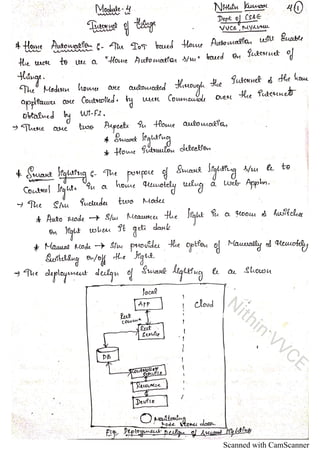 Module-4
Nithin Kumar
Dept of CS&E
VVCE, Mysuru
4 ①
Internet of things
* Home Automation :- The IoT based Home Automation will Enable
the user to use a "Home Automation s/m" based on Internet of
things.
The Modern home are automated through the Internet & the home
appliances are Controlled. by user Commands over the Internet
obtained by Wi-Fi.
→ There are two Aspects in Home automation,
* Smart lighting
* Home Intrusion detection
* Smart lighting :- The purpose of Smart lighting s/m is to
Control lights in a home Remotely using a Web Appln.
→ The s/m Includes two Modes
* Auto Mode → s/m Measures the light in a room & switches
on light when it gets dark
* Manual Mode → s/m provides the option of Manually & Remotely
switching on/off the light.
→ The deployment design of Smart lighting is as shown
local
Cloud
App
Rest
Rest
Service
DB
Controller
Service
Resource
Device
Monitoring
Node stores data
Fig. Deployment Design of Smart lighting
Nithin VVCE
Scanned with CamScanner